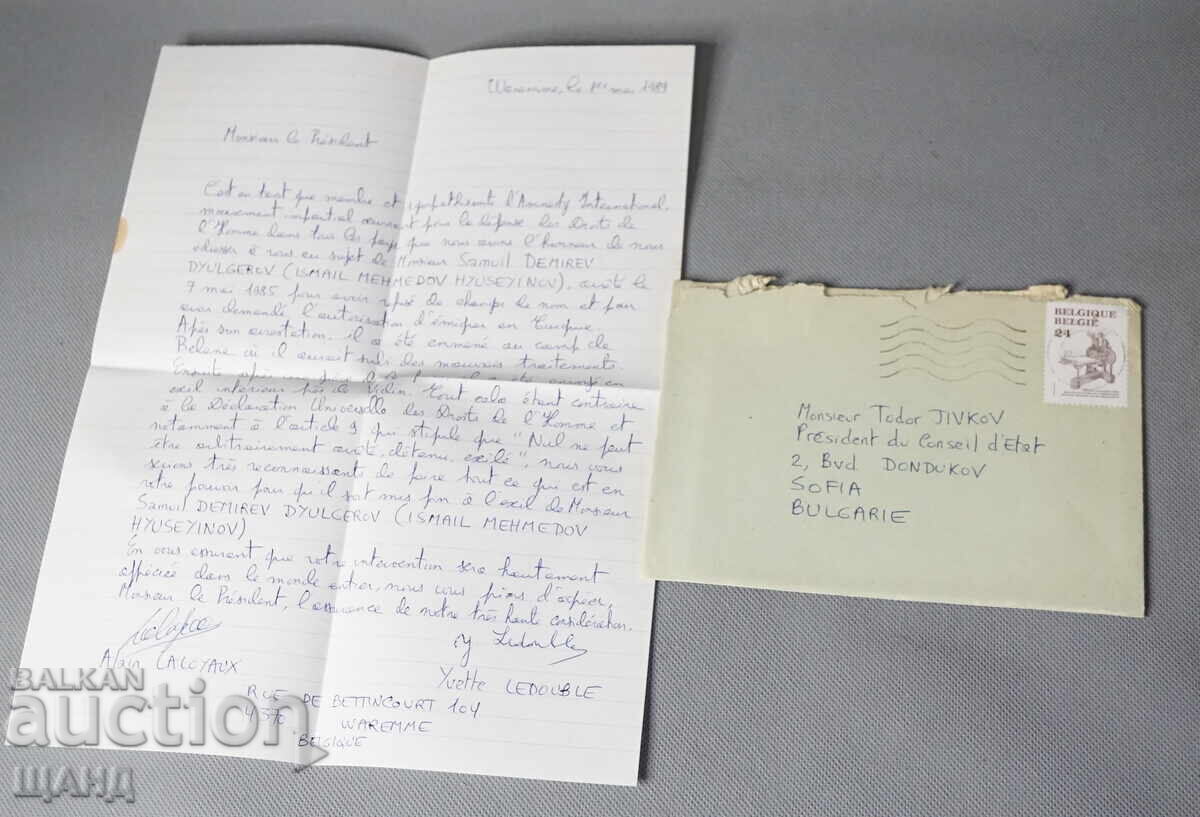 Waremme, le 1er mai 1989
Monsieur le Président
C'est en tant que membre et sympathisants d'Amnesty International,
mouvement impartial œuvrant pour la défense des Droits de
l'Homme dans tous les pays que nous avons l'honneur de nous
adresser à vous au sujet de Monsieur Samuil DEMIREV
DYULGEROV (ISMAIL MEHMEDOV HYUSEYINOV), arrêté le
7 mai 1985 pour avoir refusé de changer de nom et pour
avoir demandé l'autorisation d'émigrer en Turquie.
Après son arrestation, il a été emmené au camp de
Belene où il aurait subi des mauvais traitements.
Ensuite après il a été envoyé en
exil intérieur près de Vidin. Tout cela étant contraire
à la Déclaration Universelle des Droits de l'Homme et
notamment à l'article 9 qui stipule que "Nul ne peut
être arbitrairement arrêté, détenu, exilé", nous vous
serions très reconnaissants de faire tout ce qui est en
votre pouvoir pour qu'il soit mis fin à l'exil de Monsieur
Samuil DEMIREV DYULGEROV (ISMAIL MEHMEDOV
HYUSEYINOV)
En vous assurant que votre intervention sera hautement
appréciée dans le monde entier, nous vous prions d'agréer,
Monsieur le Président, l'assurance de notre très haute considération.
Y Ledouble
Alain CALOYAUX
Yvette LEDOUBLE
RUE DE BETTINCOURT 104
4370 WAREMME
BELGIQUE
BELGIQUE
BELGIË
24
Monsieur Todor JIVKOV
Président du Conseil d'Etat
2, Bvd. DONDUKOV
SOFIA
BULGARIE
BALKAN
auction
ЩАНД